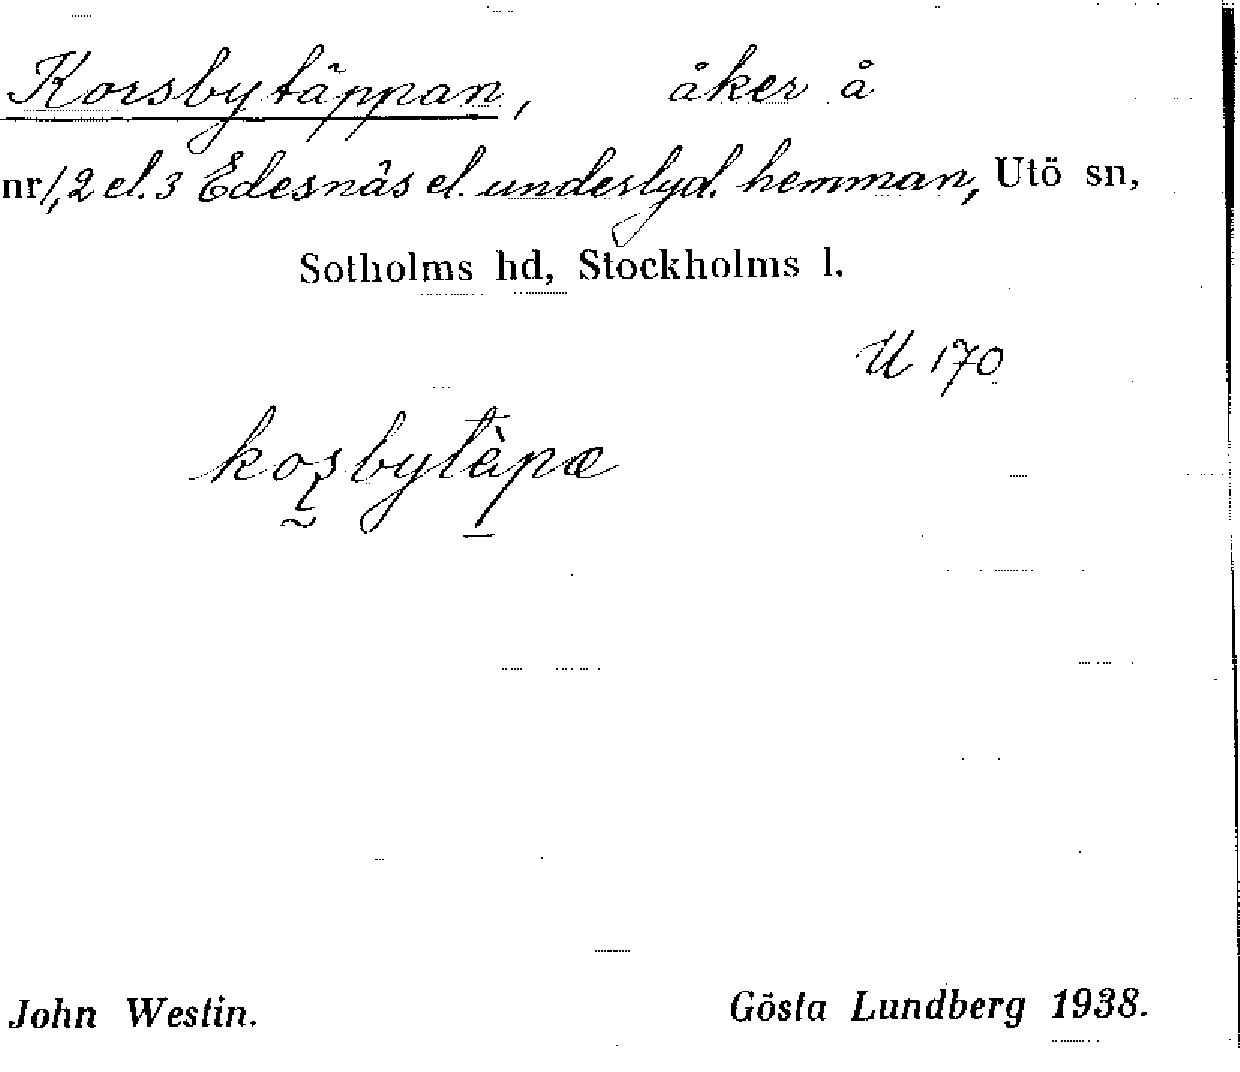 Korsbytäppan, åker å
nr 1, 2 el. 3 Edesnäs el. underlyd. hemman, Utö sn,
Sotholms hd, Stockholms l.
U 170
John Westin. Gösta Lundberg 1938.